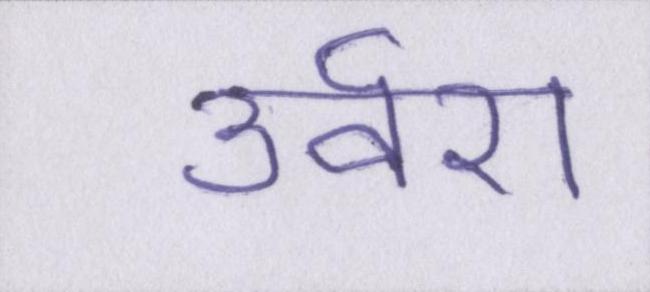 उर्वरा